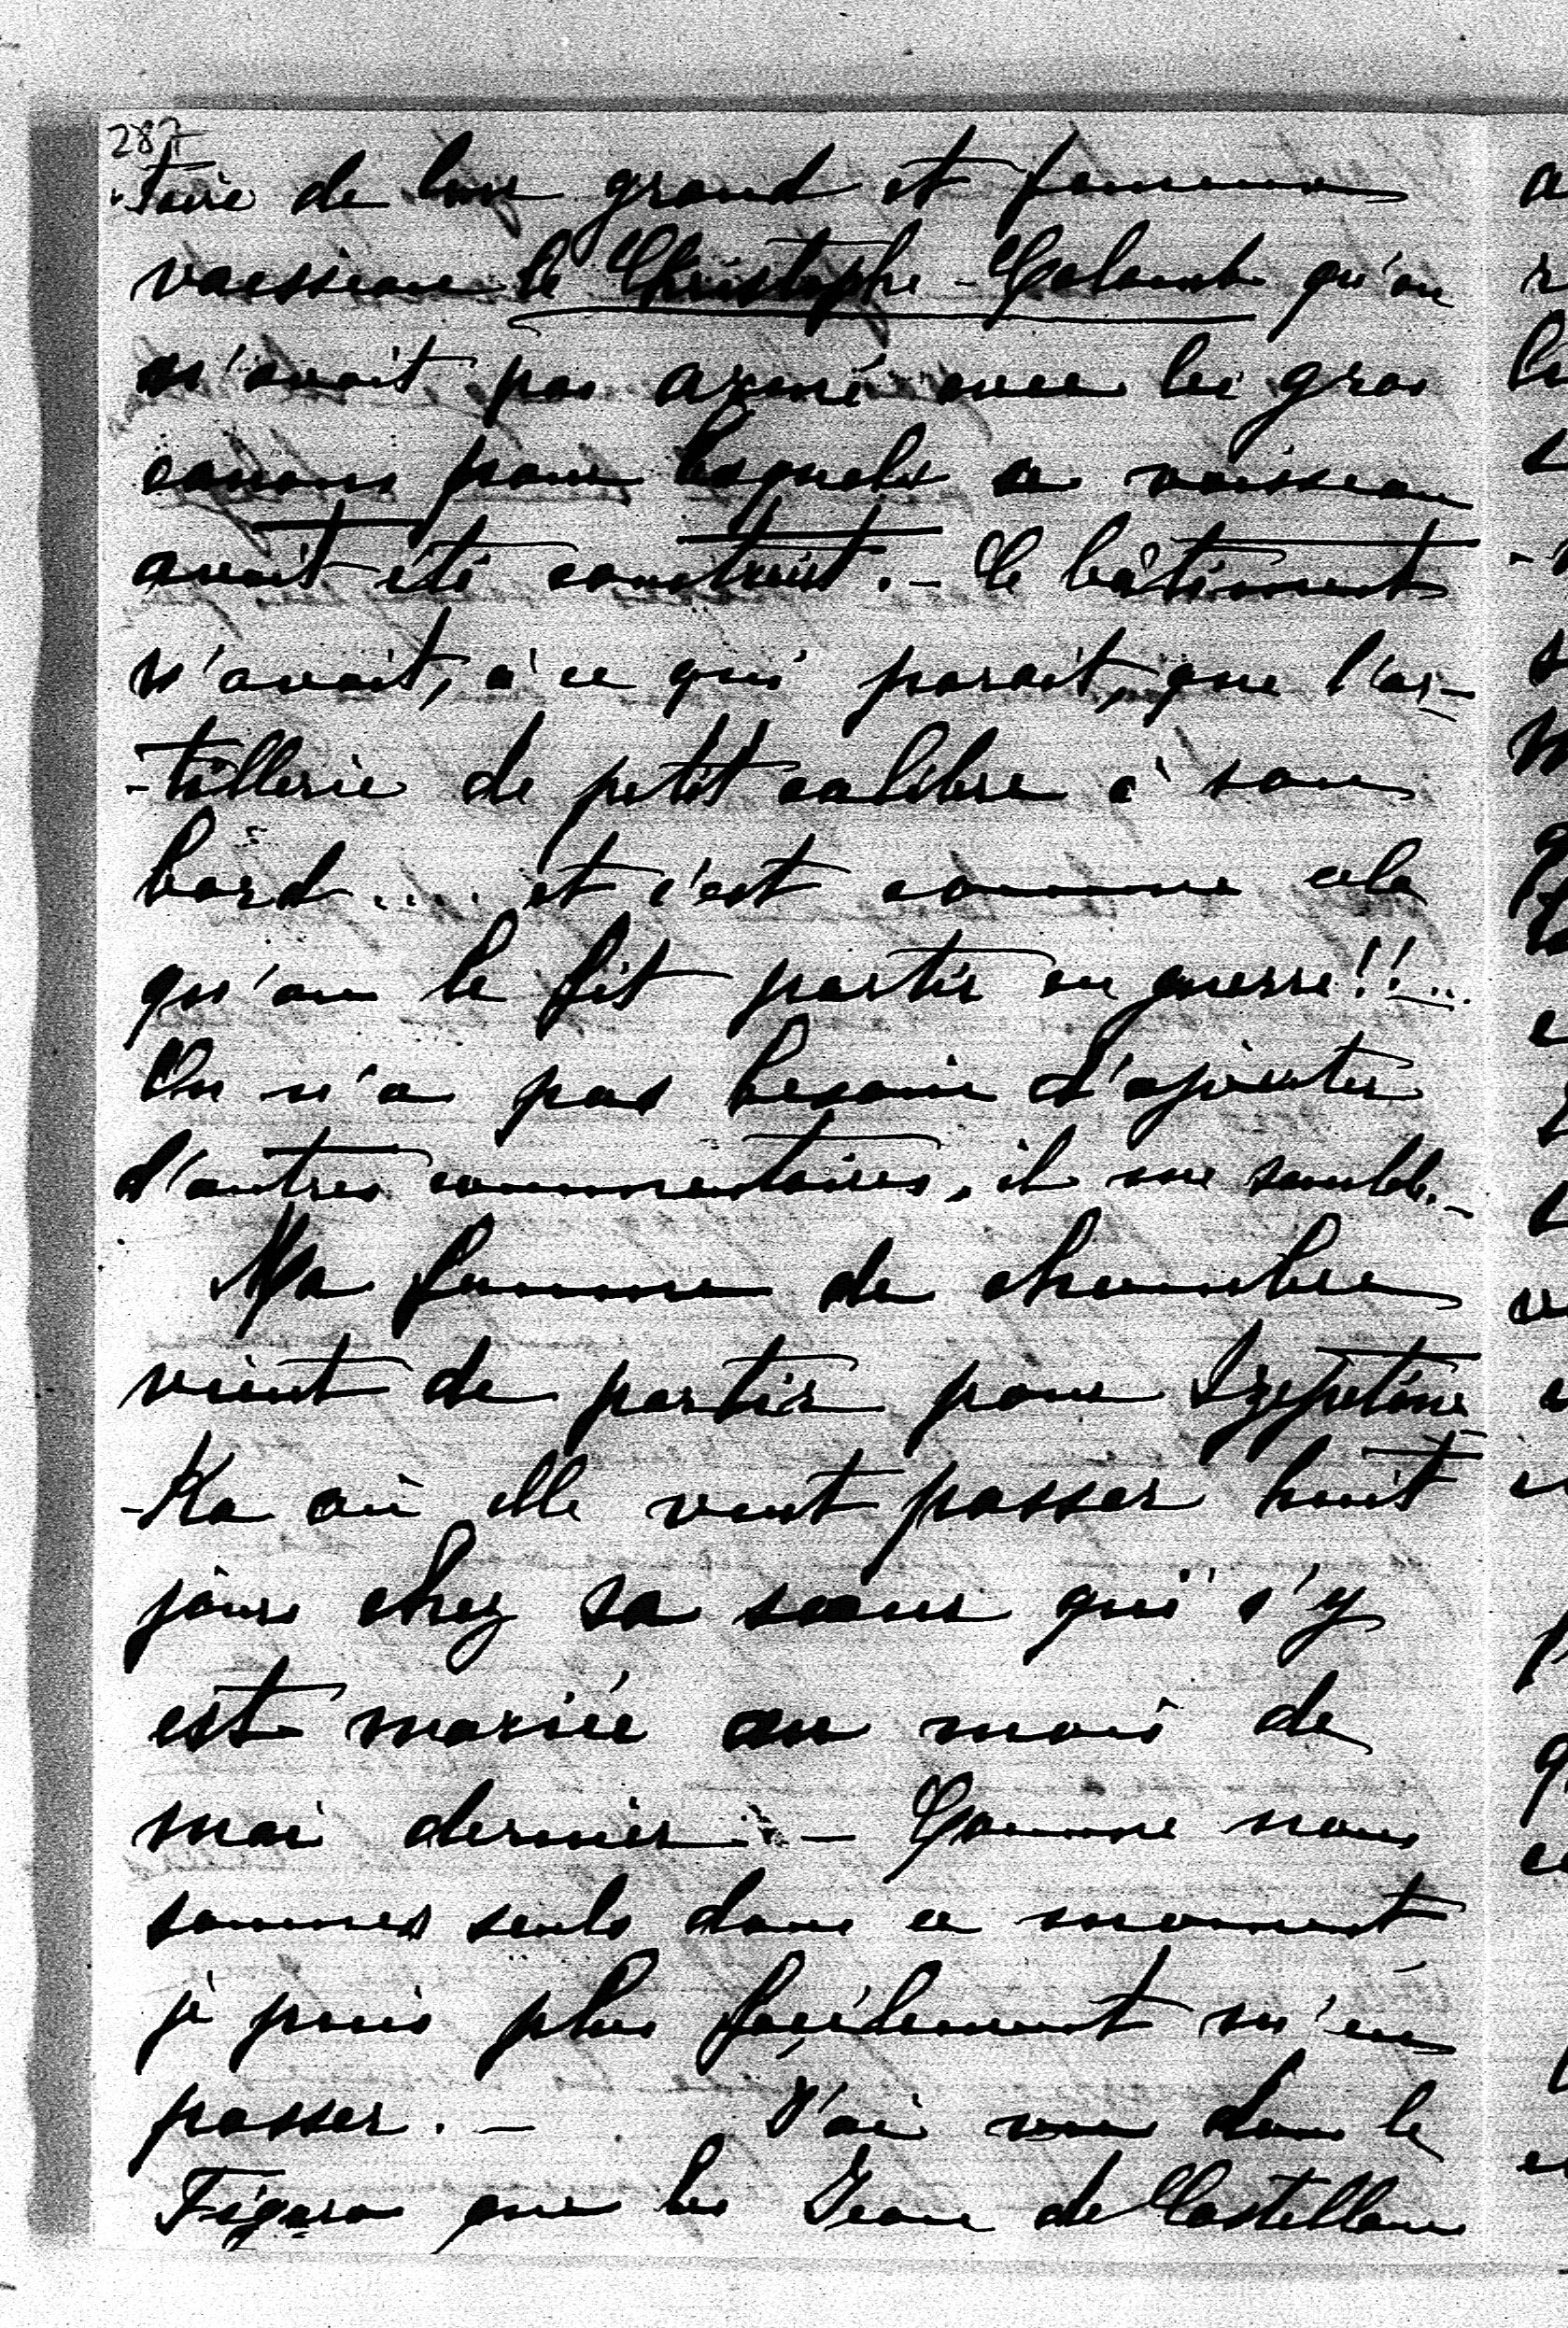 287
-toire de leur grand et fameux
vaisseau le Christophe-Colomb qu'on
n'avait pas armé avec les gros
canons pour lesquels ce vaisseau
avait été construit. - Le bâtiment
n'avait, à ce qui parait, que l'ar-
-tillerie de petit calibre à son
bord .... et c'est comme cela
qu'on le fit partir en guerre!!...
On n'a pas besoin d'ajouter
d'autres commentaires, il me semble. -
Ma femme de chambre
vient de partir pour Szepetow-
-Ka où elle veut passer huit
jours chez sa soeur qui s'y
est mariée au mois de
mai dernier. - Comme nous
sommes seuls dans ce moment
je puis plus facilement m'en
passer. - J'ai vu dans le
Figaro que les Jean de Castellane